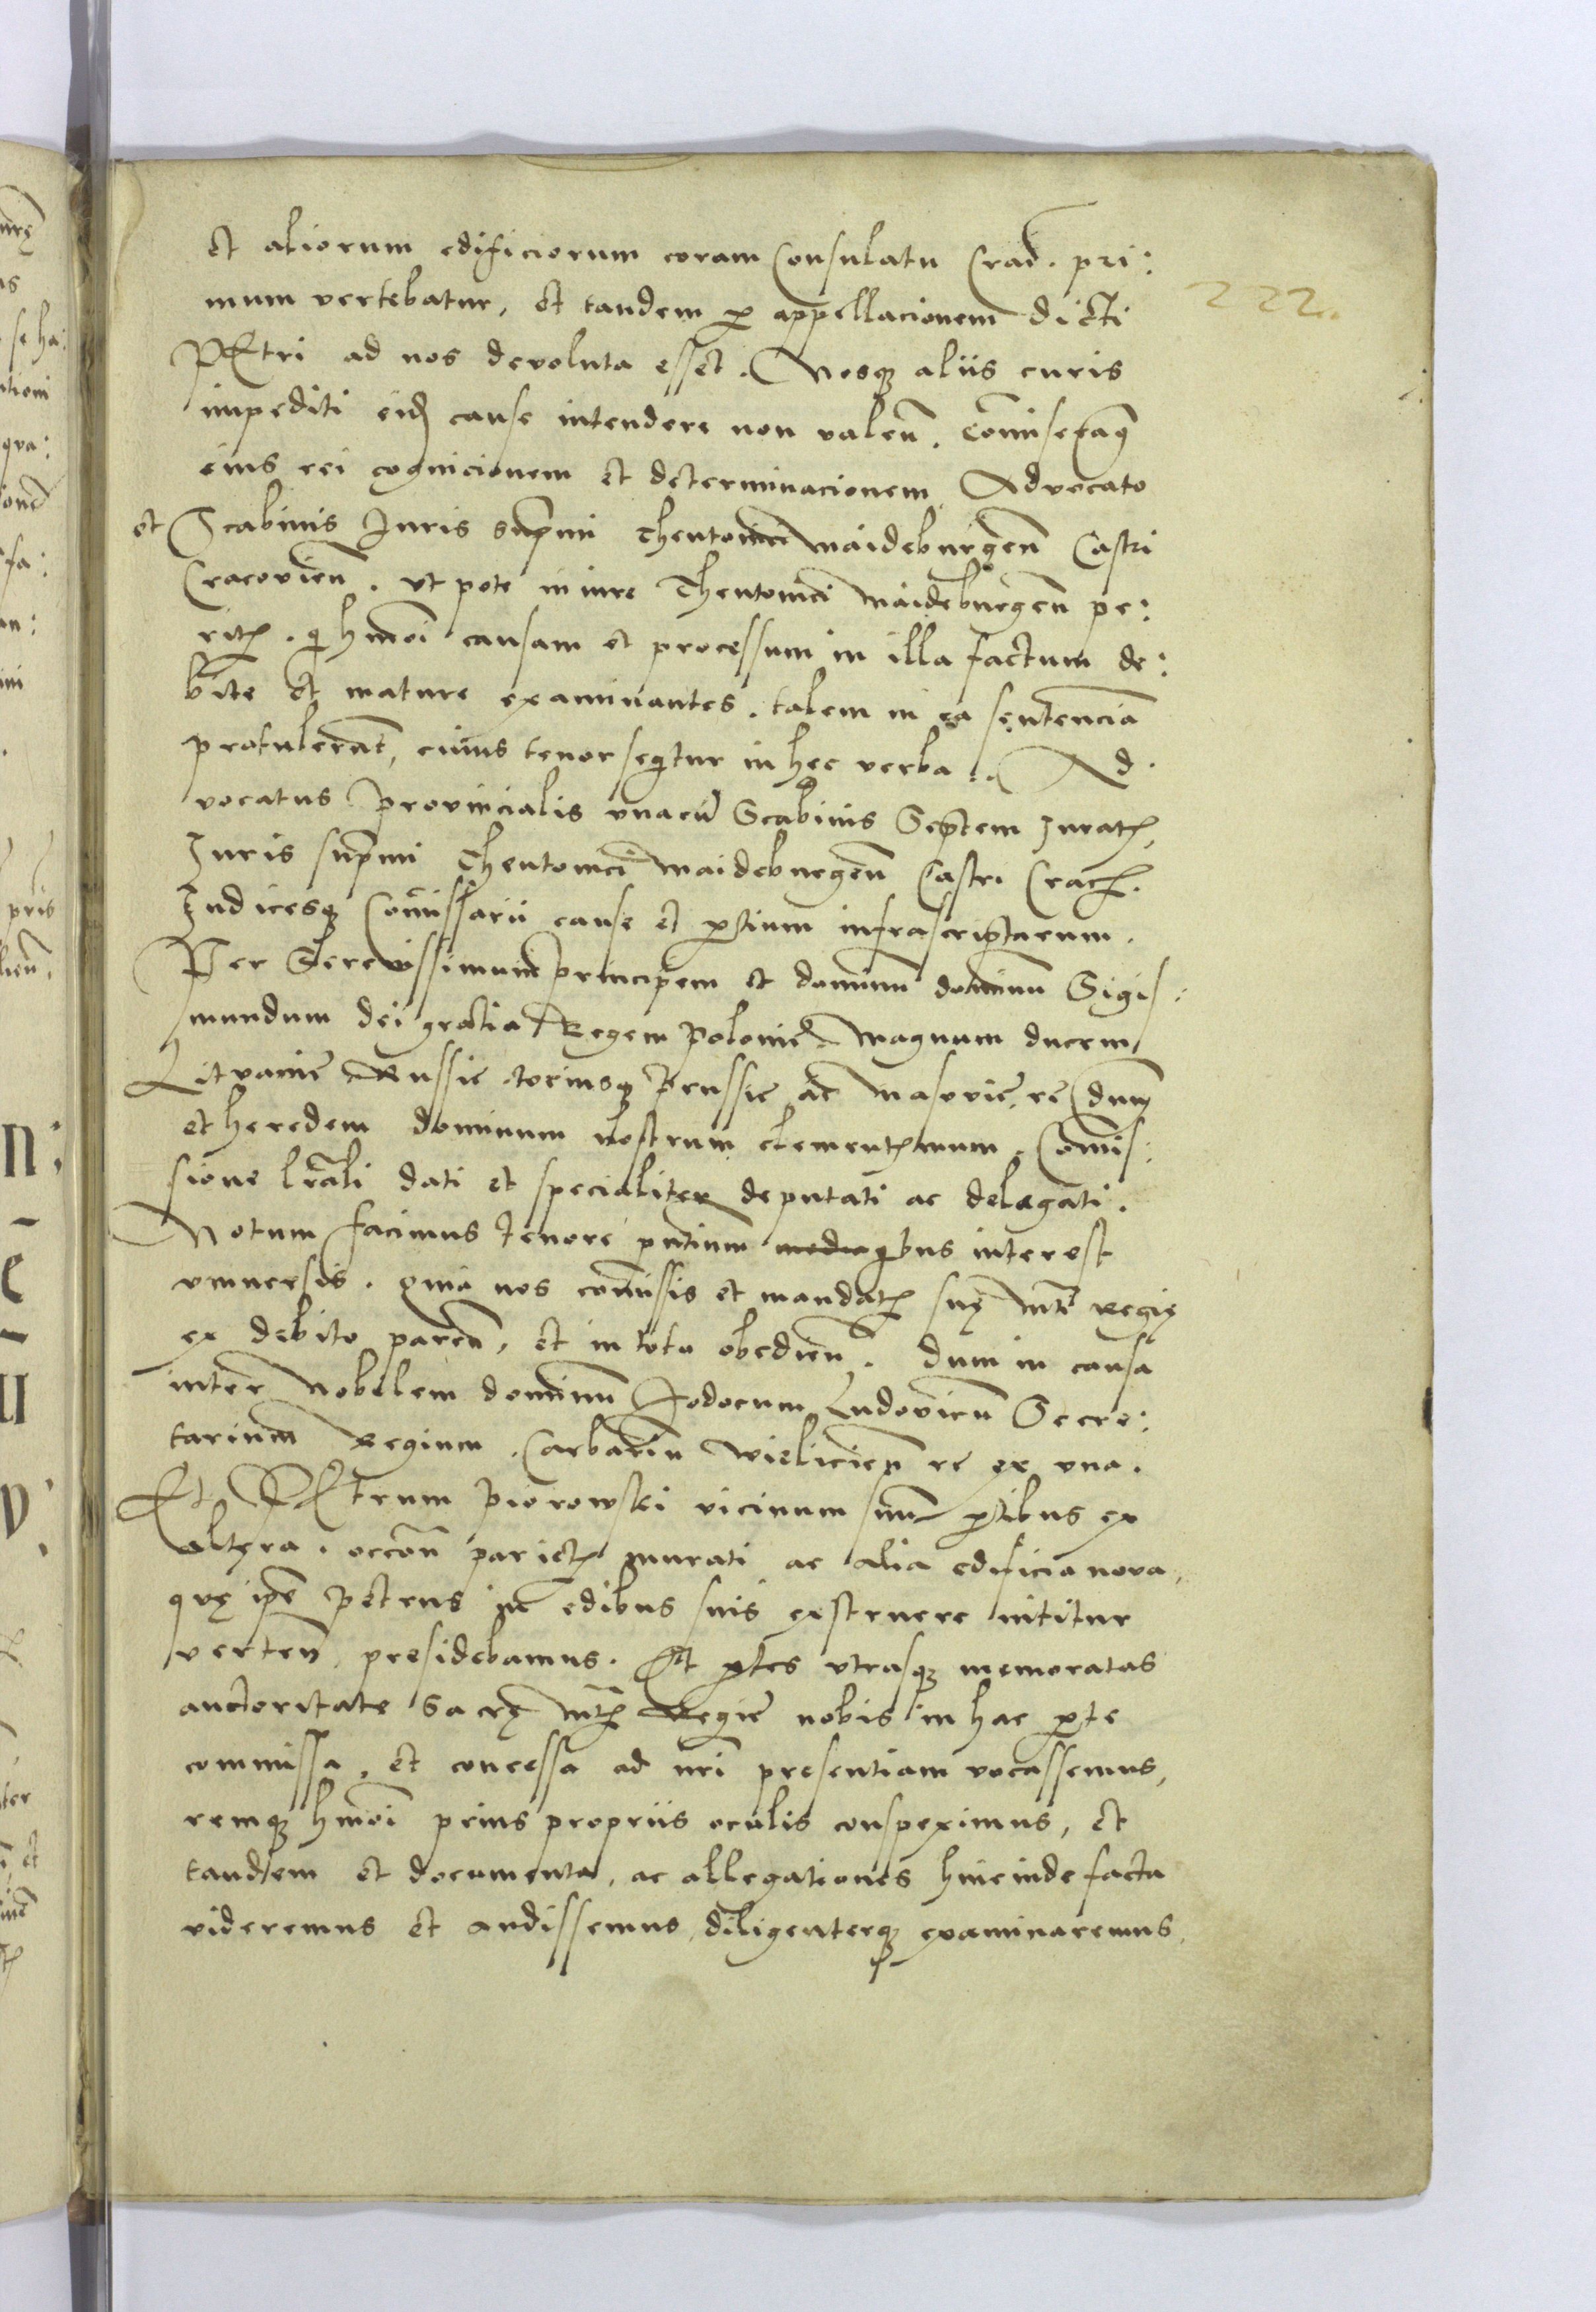 et aliorum edificiorum coram Consulatu Crac. pri:
mum vertebatur, et tandem p appellacionem dicti
PEtri ad nos devoluta esset. Nosq aliis curis
impediti eid cause intendere non valeñ. Comisera
eius rei cognicionem et determinacionem Advocato
et Scabinis Iuris supmi Theutonici Maideburgeñ Castri
Cracovieñ. ut pote in iure Theutonici Maideburgeñ pe:
rit. q hmoi causam et processum in illa factum de:
bite et mature examinantes. talem in ea sentenciã
protulerunt, cuius tenor seqtur in hec verba: Ad:
vocatus provincialis unacũ Scabinis Septem Jurat,
Juris supmi Theutonici Maideburgeñ Castri Crac.
Iudicesq Comissarii cause et ptium infrascriptarum.
Per Serenissimum principem et dominũ dominũ Sigis:
mundum dei gratia Regem Polonie Magnum ducem
Litvanie Russie tociusq Prussie ac Masovie, rc dnm
et heredem dominum nostrum clementmum. Comis:
sione lrali dati et specialiter deputati ac delegati.
Notum facimus tenore pntium quibus interest
universis. quia nos comissis et mandat sue Mti Regie
ex debito pareñ, et in toto obedieñ. dum in causa
inter Nobilem dominũ Jodocum Ludovicũ Secre:
tarium Regium. Carbariũ Wieliciesñ rc ex una.
Et PEtrum Piorowski vicinum suũ ptibus ex
altera. occoñ pariet murati ac alia edificia nova,
que ipe Petrus in edibus suis exstruere nititur
verteñ presidebamus. Et ptes utrasq memoratas
auctoritate Sacre Mt Regie nobis in hac pte
commissa, et concessa ad nri presentiam vocassemus,
remq hmoi prius propriis oculis conspeximus, et
tandem et documenta, ac allegationes hincinde facta
videremus et audissemus, diligenterq examinaremus,
222.